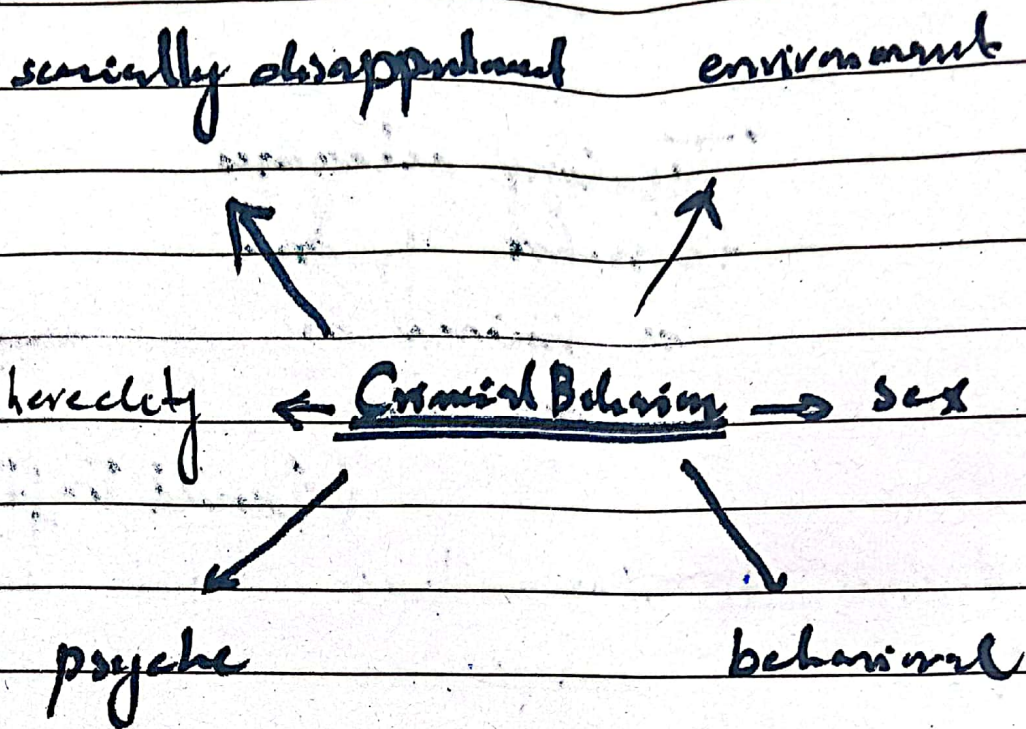 socially disappointed environment
heredity ← Criminal Behavior → sex
psyche behavioral